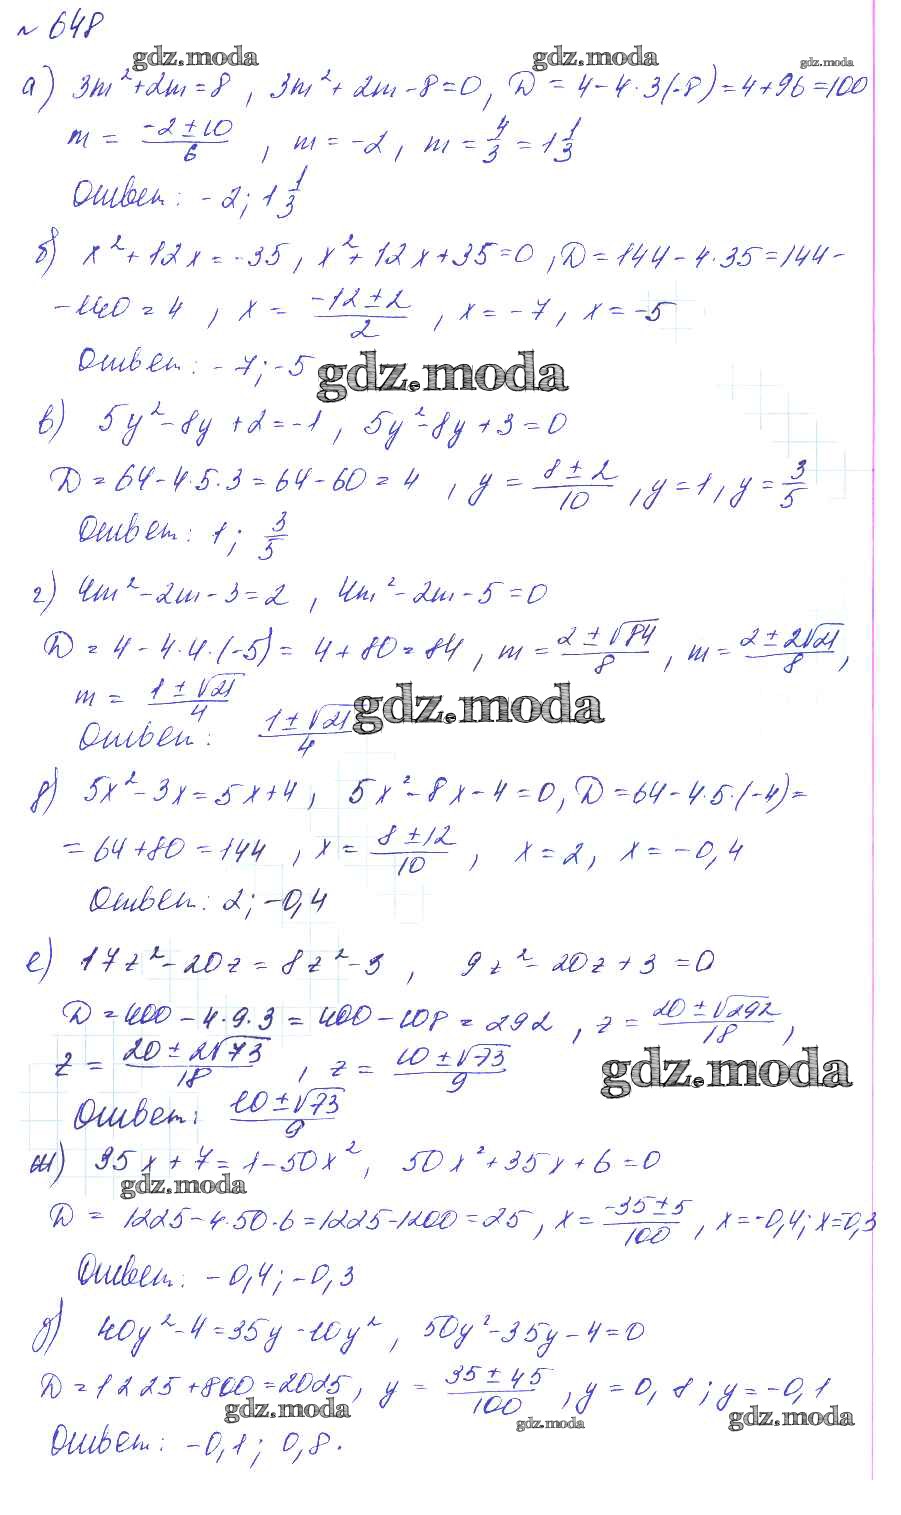 № 648
gdz.moda gdz.moda gdz.moda
а) 3m² + 2m = 8, 3m² + 2m - 8 = 0, D = 4 - 4·3(-8) = 4 + 96 = 100
m = (-2 ± 10)/6, m = -2, m = 4/3 = 1 1/3
Ответ: -2; 1 1/3
б) x² + 12x = -35, x² + 12x + 35 = 0, D = 144 - 4·35 = 144 -
- 140 = 4, x = (-12 ± 2)/2, x = -7, x = -5
Ответ: -7; -5
gdz.moda
в) 5y² - 8y + 2 = -1, 5y² - 8y + 3 = 0
D = 64 - 4·5·3 = 64 - 60 = 4, y = (8 ± 2)/10, y = 1, y = 3/5
Ответ: 1; 3/5
г) 4m² - 2m - 3 = 2, 4m² - 2m - 5 = 0
D = 4 - 4·4·(-5) = 4 + 80 = 84, m = (2 ± √84)/8, m = (2 ± 2√21)/8,
m = (1 ± √21)/4
gdz.moda
Ответ: (1 ± √21)/4
д) 5x² - 3x = 5x + 4, 5x² - 8x - 4 = 0, D = 64 - 4·5·(-4) =
= 64 + 80 = 144, x = (8 ± 12)/10, x = 2, x = -0,4
Ответ: 2; -0,4
е) 17z² - 20z = 8z² - 3, 9z² - 20z + 3 = 0
D = 400 - 4·9·3 = 400 - 108 = 292, z = (20 ± √292)/18,
z = (20 ± 2√73)/18, z = (10 ± √73)/9
gdz.moda
Ответ: (10 ± √73)/9
ж) 35x + 7 = 1 - 50x², 50x² + 35x + 6 = 0
gdz.moda
D = 1225 - 4·50·6 = 1225 - 1200 = 25, x = (-35 ± 5)/100, x = -0,4; x = -0,3
Ответ: -0,4; -0,3
д) 40y² - 4 = 35y - 10y², 50y² - 35y - 4 = 0
D = 1225 + 800 = 2025, y = (35 ± 45)/100, y = 0,8; y = -0,1
gdz.moda gdz.moda gdz.moda
Ответ: -0,1; 0,8.